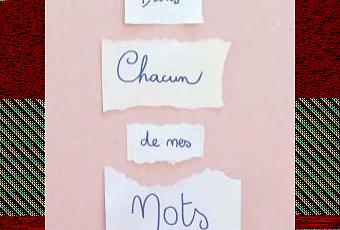 Chacun
de mes
Mots